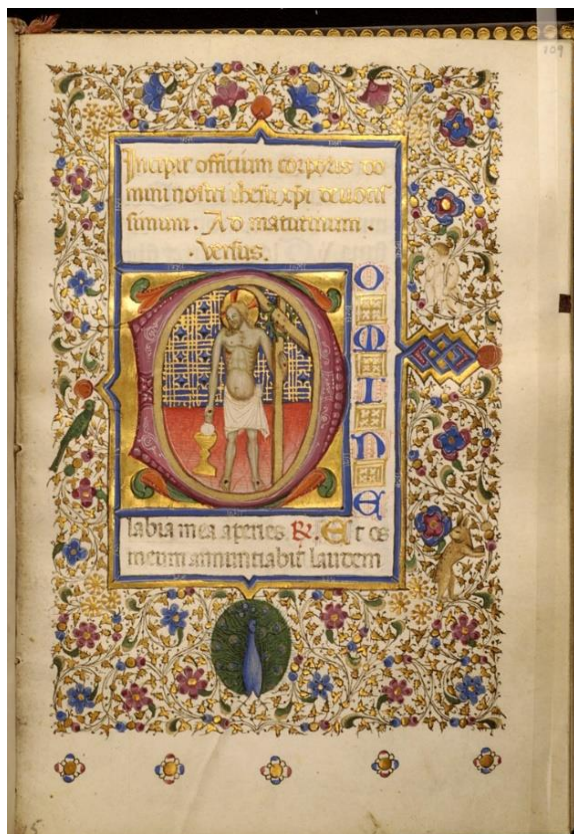 109
Incipit offitium corporis do
mini nostri ihesu xpi deuotis
simum. Ad matutinum.
Versus.
DOMINE
labia mea aperies. R. Et os
meum annuntiabit laudem